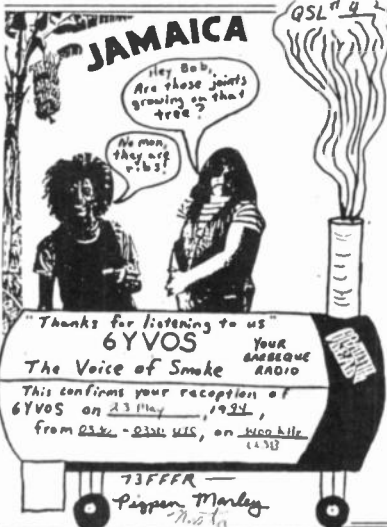 QSL # 4
JAMAICA
Hey Bob,
Are those joints
growing on that
tree?
No mon,
they are
ribs!
"Thanks for listening to us"
6YVOS
The Voice of Smoke
YOUR
BARBEQUE
RADIO
This confirms your reception of
6YVOS on 23 May, 1994,
from - UTC, on
73FFFR —
Pigpen Marley